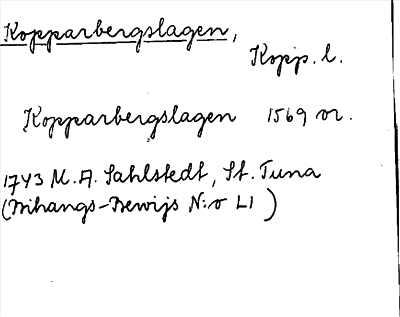 Kopparbergslagen,
Kopp. l.
Kopparbergslagen 1569 or.
1743 M. A. Sahlstedt, St. Tuna
(Bihangs-Bewijs N:o LI)